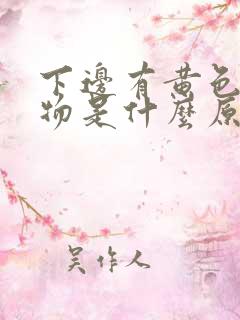 下邊有黃色
物是什麼原
吴作人